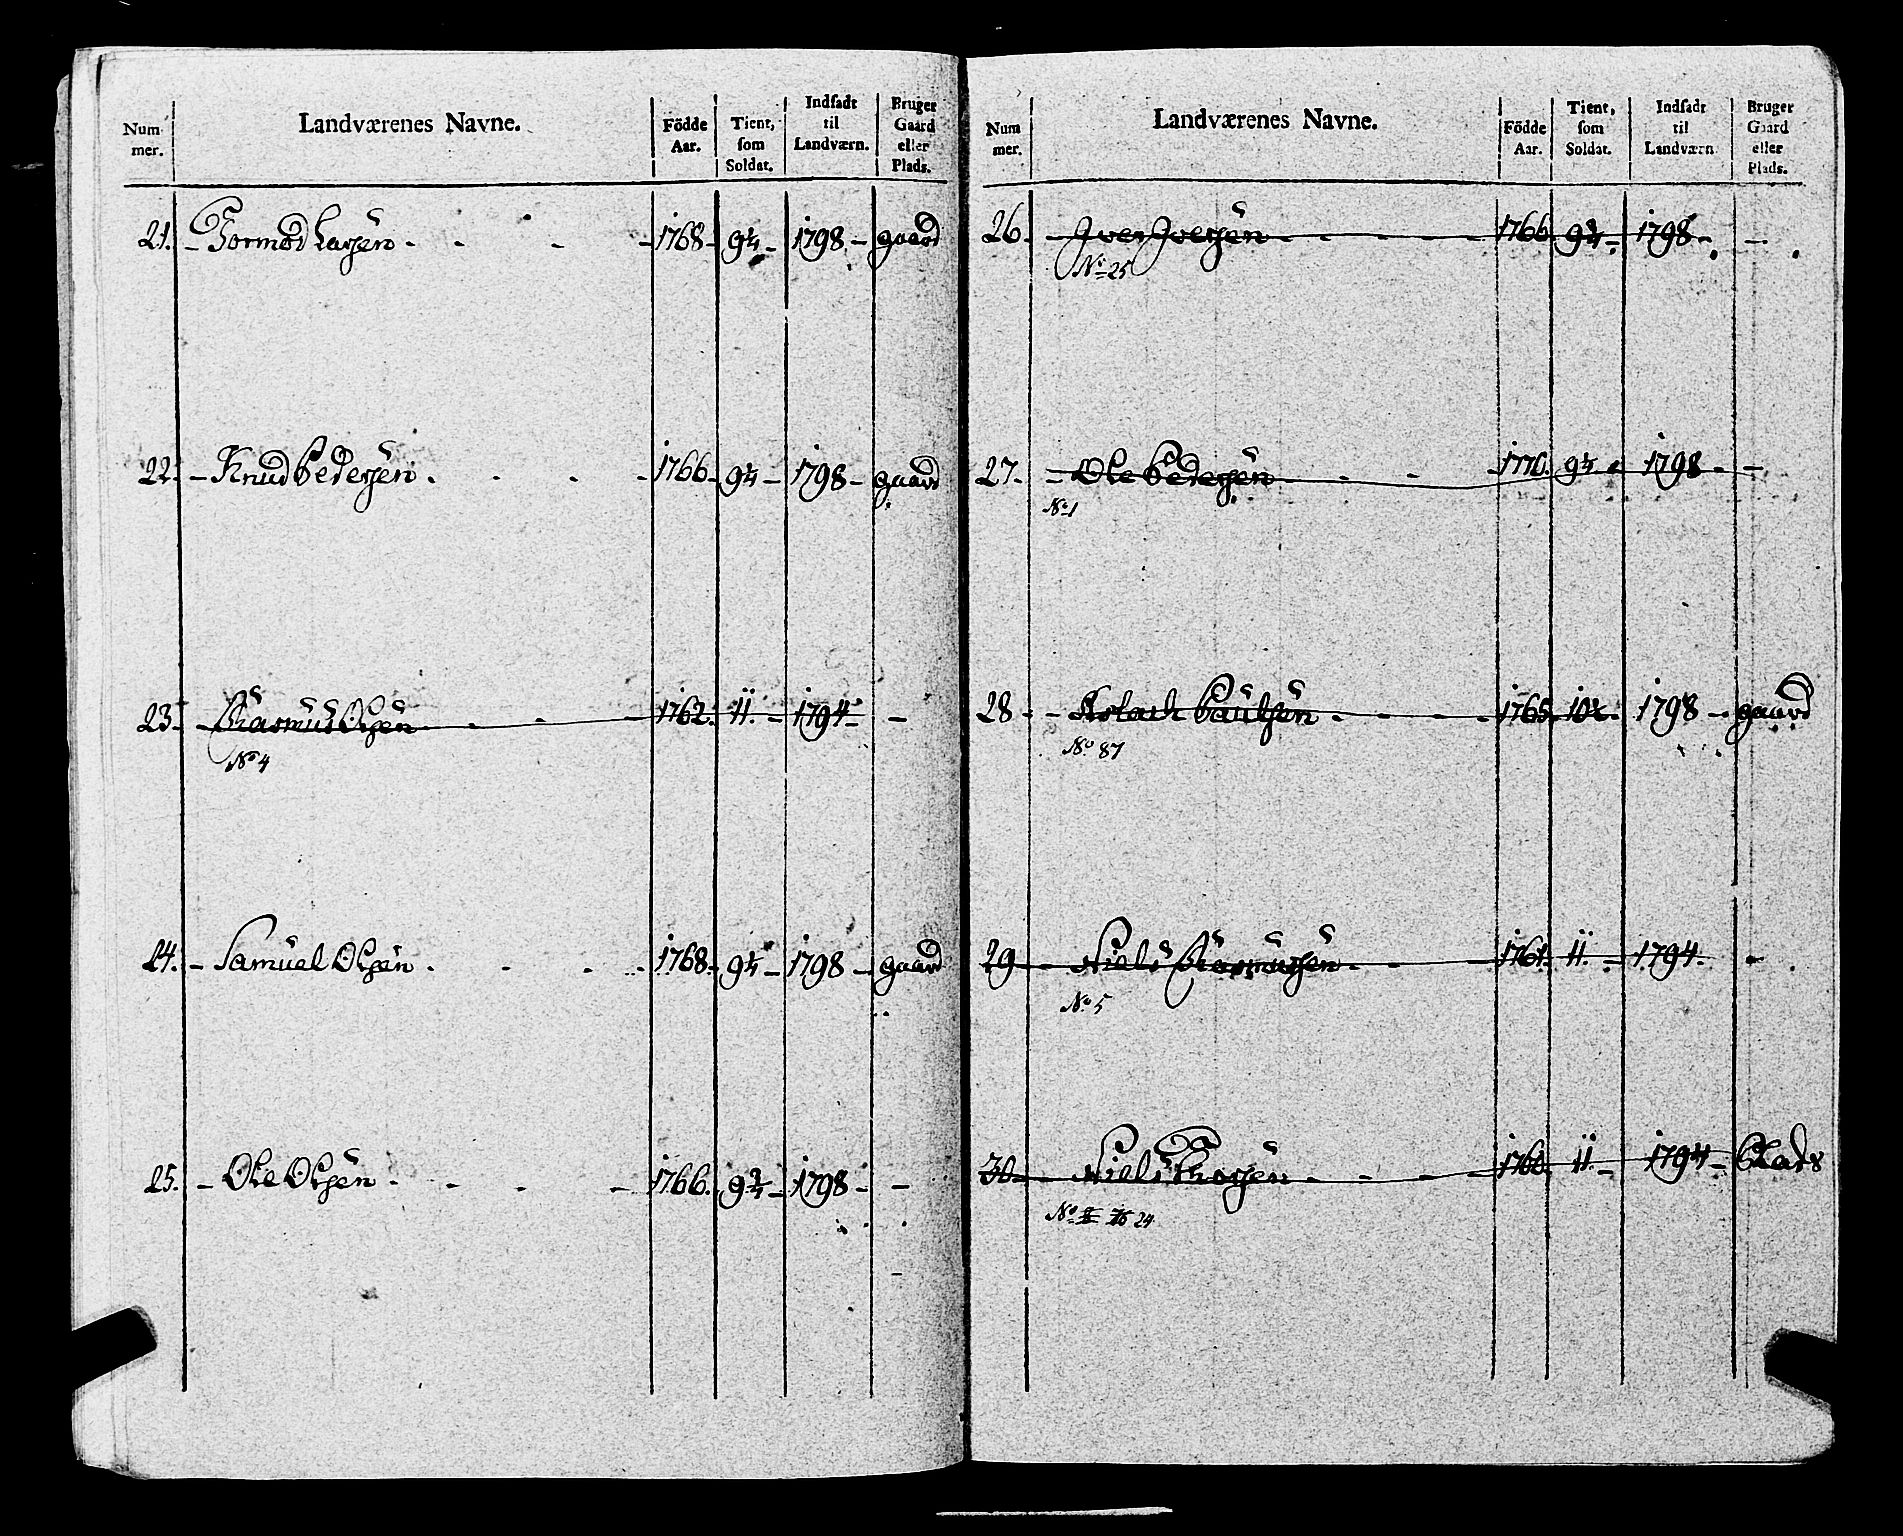 Num mer. Landværenes Navne. Födde Aar. Tient, som Soldat. Indsadt til Landværn. Bruger Gaard eller Plads.
21. - Tormod Larsen - 1768 - 9¼ - 1798 - gaard
22. - Knud Pedersen - 1766 - 9¼ - 1798 - gaard
23. - Rasmus Olsen - 1762. 11. - 1794 - -
No 4
24. - Samuel Olsen - 1768 - 9¼ - 1798 - gaard
25. - Ole Olsen - 1766. 9¾ - 1798 - -
Num mer. Landværenes Navne. Födde Aar. Tient, som Soldat. Indsadt til Landværn Bruger Gaard eller Plads.
26 - Iver Iversen - 1766 9¾ - 1798 - -
No 25
27. - Ole Pedersen - 1770. 9¼ 1798 - -
No 1
28 - Aslach Paulsen - 1765 10¼ - 1798 - gaard
No 87
29 - Niels Rasmusen - 1761. 11. - 1794. -
No 5
30 - Niels Thorsen - 1760. 11. - 1794 - Plads
No 24